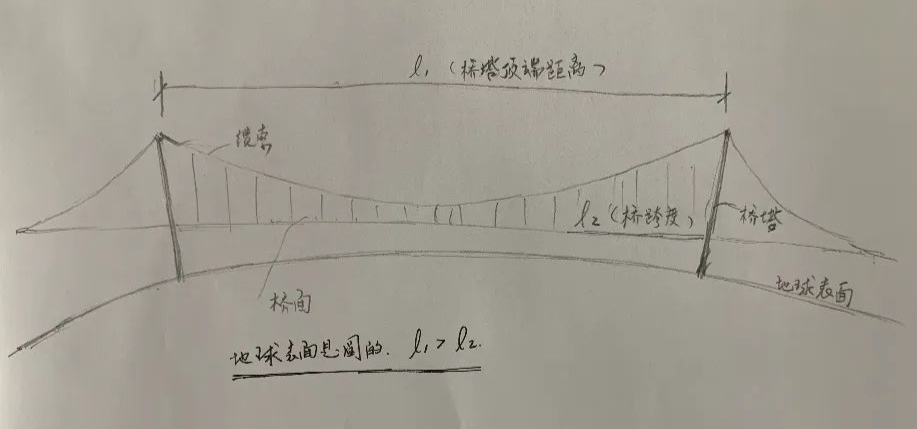 l₁（桥塔顶端距离）
缆索
l₂（桥跨度）
桥塔
桥面
地球表面
地球表面是圆的. l₁ > l₂.